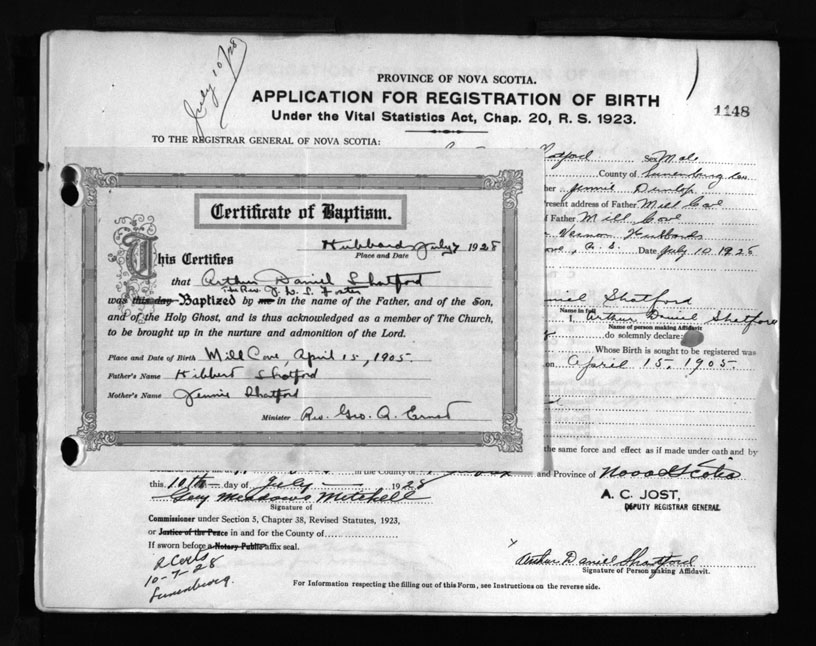 July 10/28
PROVINCE OF NOVA SCOTIA.
APPLICATION FOR REGISTRATION OF BIRTH
Under the Vital Statistics Act, Chap. 20, R. S. 1923.
1148
TO THE REGISTRAR GENERAL OF NOVA SCOTIA:
Sex Male
County of Lunenburg Co
Jennie Dunlop
resent address of Father Mill Cove
Father Mill Cove
Vernon
Date July 10 1928
Certificate of Baptism.
Hubbard July 7 1928
Place and Date
This Certifies
that Arthur Daniel Shatford
Rev. Foster
was this day Baptized by me in the name of the Father, and of the Son,
and of the Holy Ghost, and is thus acknowledged as a member of The Church,
to be brought up in the nurture and admonition of the Lord.
Place and Date of Birth Mill Cove, April 15, 1905.
Father's Name Hibbert Shatford
Mother's Name Jennie Shatford
Minister Rev. Geo. A. Ernst
niel Shatford
Name in full
I, Arthur Daniel Shatford
Name of person making Affidavit
do solemnly declare:
Whose Birth is sought to be registered was
on April 15, 1905.
the same force and effect as if made under oath and by
in the County of
and Province of Nova Scotia
this 10th day of July 1928
A. C. JOST,
DEPUTY REGISTRAR GENERAL
Meadows Mitchell
Signature of
Commissioner under Section 5, Chapter 38, Revised Statutes, 1923,
or Justice of the Peace in and for the County of
If sworn before a Notary Public affix seal.
10-7-28
Lunenburg.
x Arthur Daniel Shatford
Signature of Person making Affidavit.
For Information respecting the filling out of this Form, see Instructions on the reverse side.